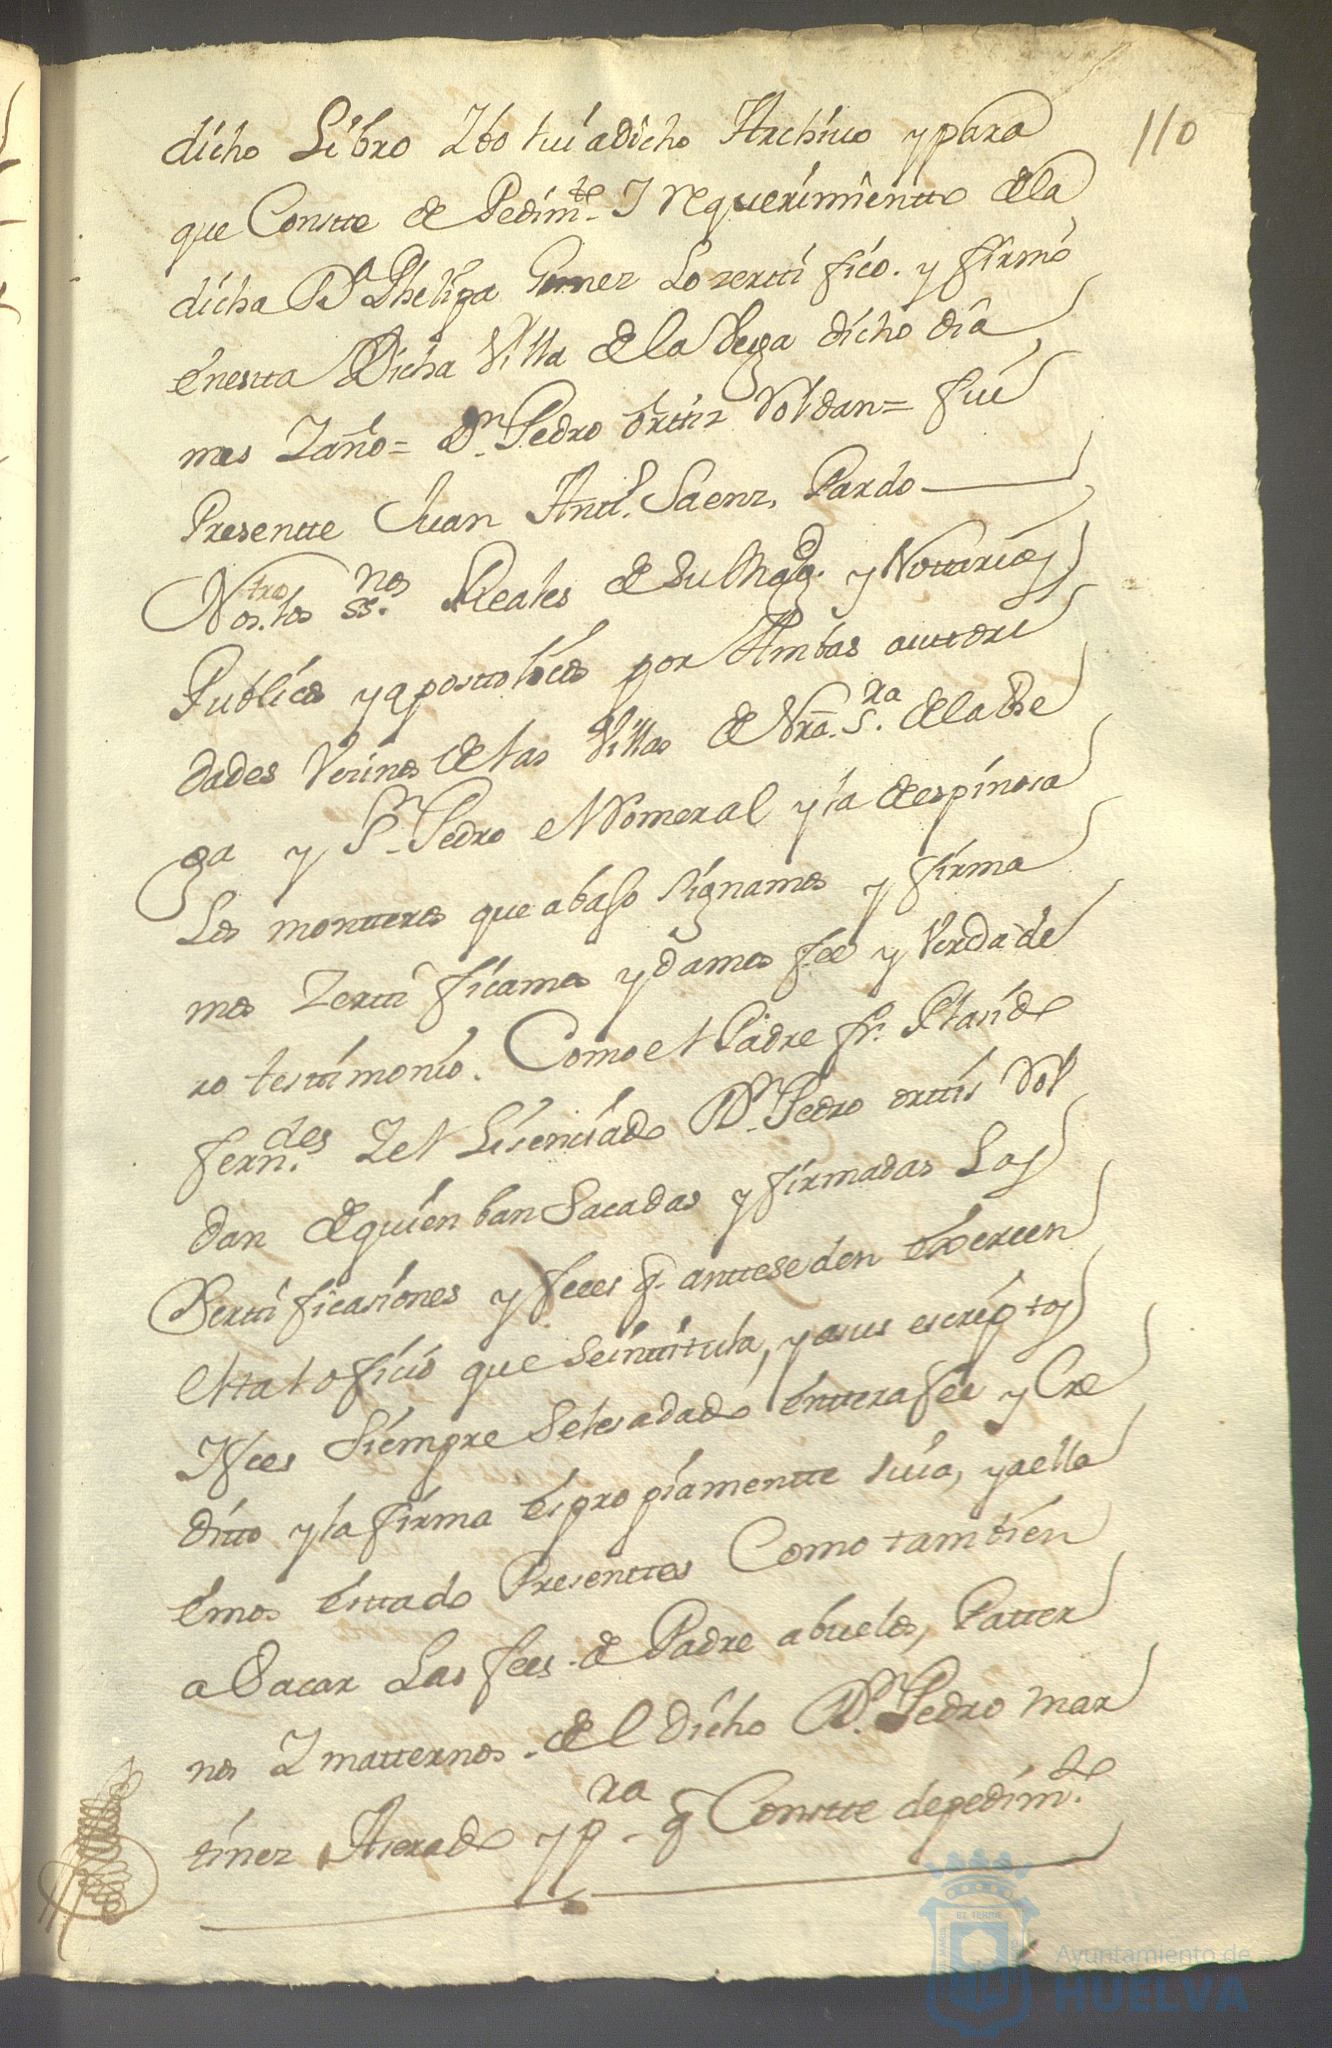 110
dicho Libro Zbolui a dicho Archivo y para
que Constte de Pedim.to I Requerimientto de la
dicha D.a Phelipa Gomez Lo zertti fico. y firmo
énestta Dicha Villa de la Vega dicho dia
mes Zaño = D.n Pedro ôrttiz Roldan = fui
Presentte Juan Antt.o Saenz, Pardo
Nos.tros los ss.nos Reales de su Mag.d y Nottarios
Publicos y apostolicos por Ambas auttori
dades Vecinos de las Villas de Nrã. S.ra de la Ve
ga y S.n Pedro el Romeral y la de espinosa
Los montteros que abaso signamos y firma
mos Zertti ficamos y damos fee y Verdade
ro testimonio. Como el Padre fr. Plasido
fern.des Zel Lisenciado D.n Pedro orttis Rol
dan de quien ban Sacadas y firmadas Las
Sertti ficasiones y feees q.e anttese den éxercen
el tal oficio que seinttitula, y a sus escriptos
Nces Siempre se les a dado énttera fee y Cre
ditto y la firma és pro piamentte suia, y a ella
émos éstado Presenttes Como tambien
a Sacar Las fees de Padre abuelos, Patter
nos Z matternos del dicho D.n Pedro mar
tinez y p.ra q Constte de pedim.to
Ayuntamiento de
HUELVA